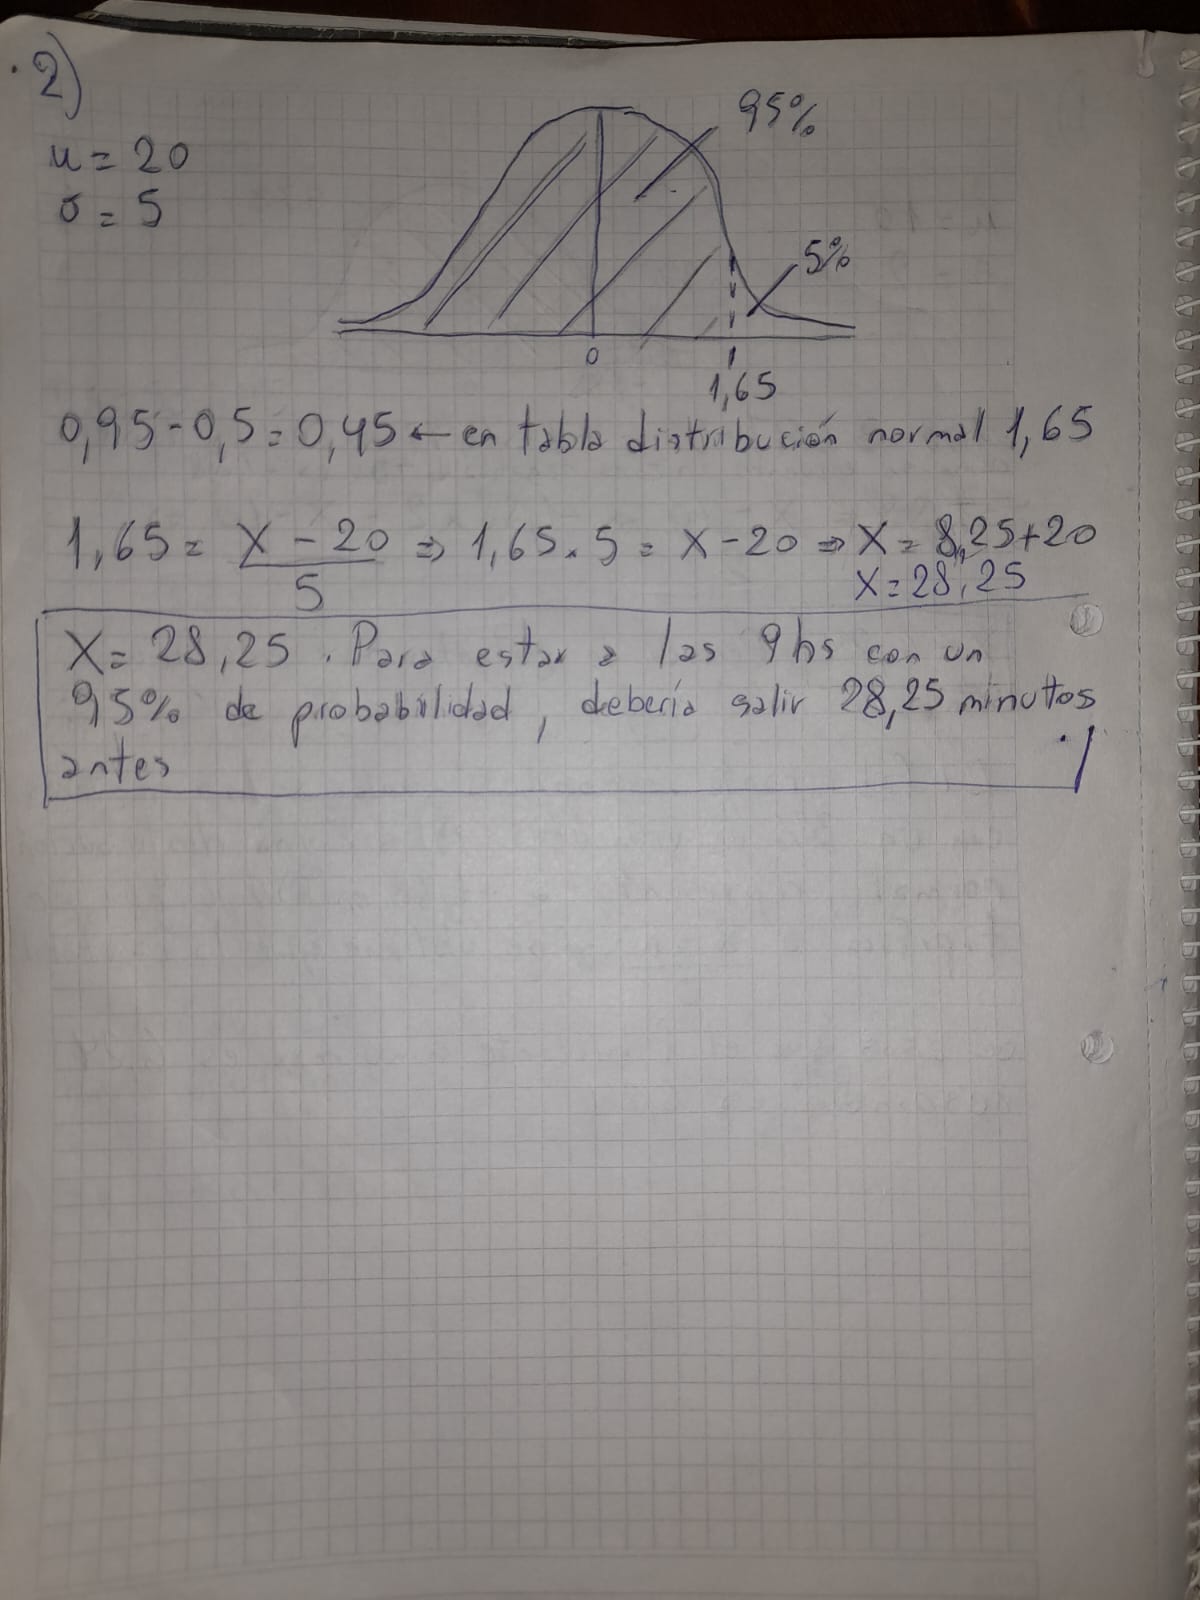 2)
95%
u = 20
σ = 5
5%
0
1,65
0,95 - 0,5 = 0,45 ← en tabla distribución normal 1,65
1,65 = X - 20 / 5 ⇒ 1,65 . 5 = X - 20 ⇒ X = 8,25 + 20
X = 28,25
X = 28,25 . Para estar a las 9hs con un
95% de probabilidad, debería salir 28,25 minutos
antes